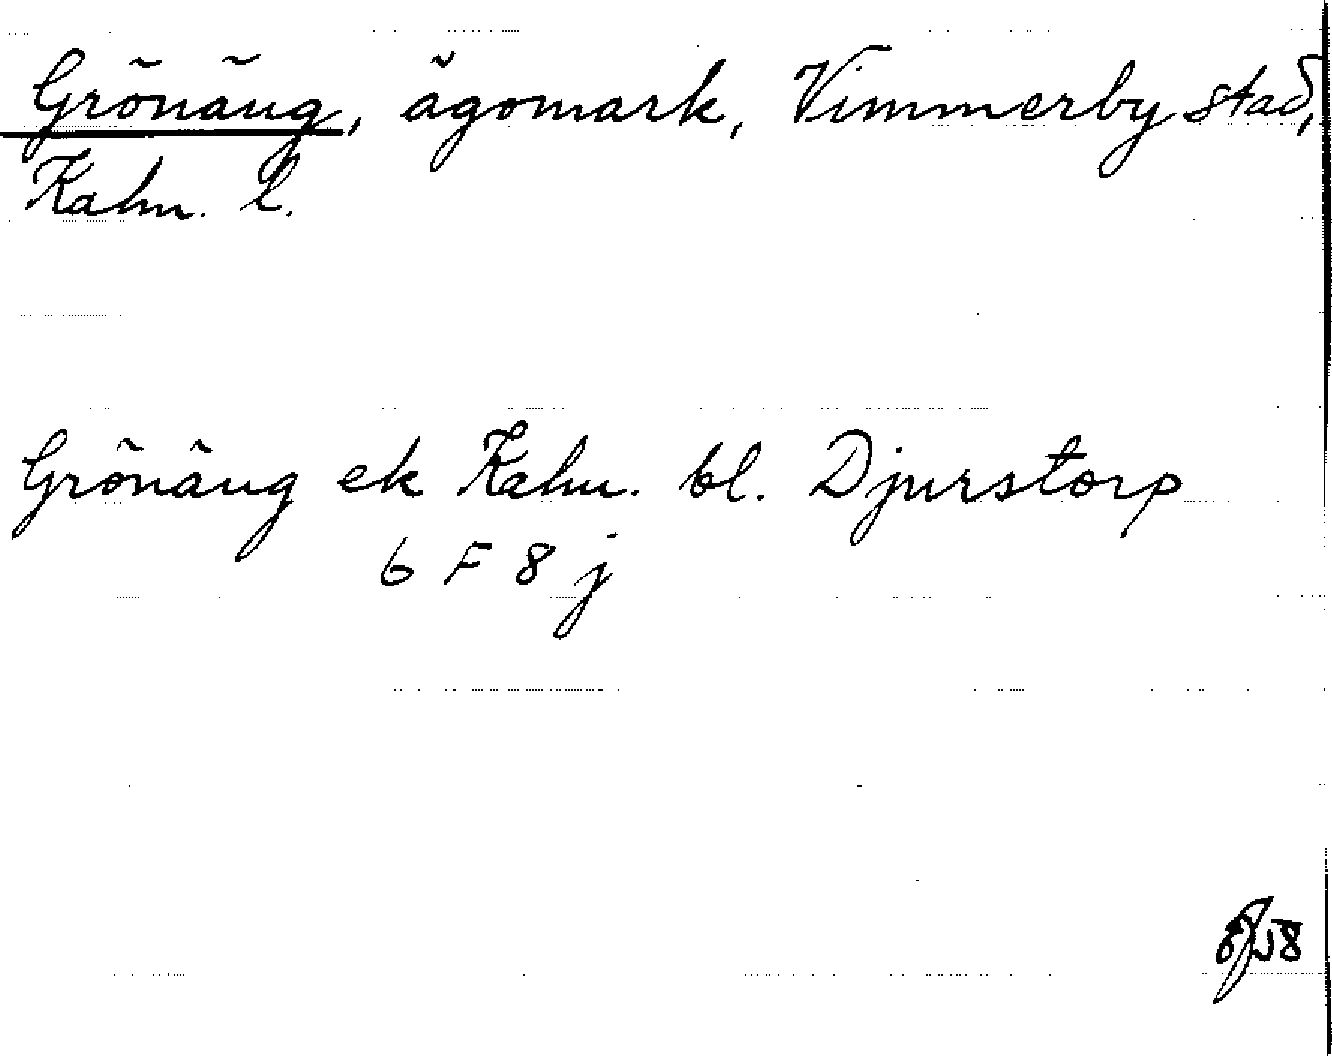 Grönäng, ägomark, Vimmerby stad,
Kalm. l.
Grönäng ek Kalm. bl. Djurstorp
6 F 8 j